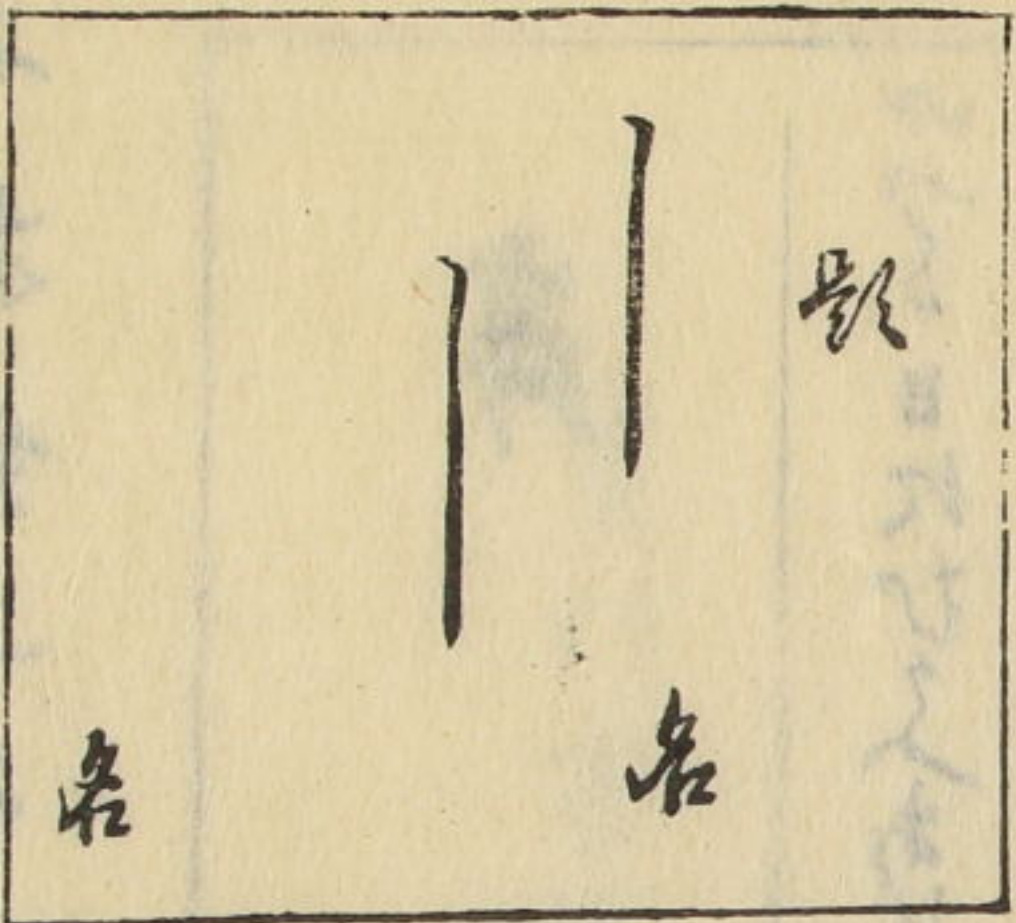 題
名
名